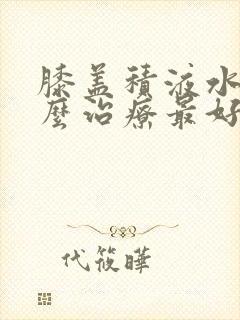 膝盖積液水
麼治療最好
代筱曄